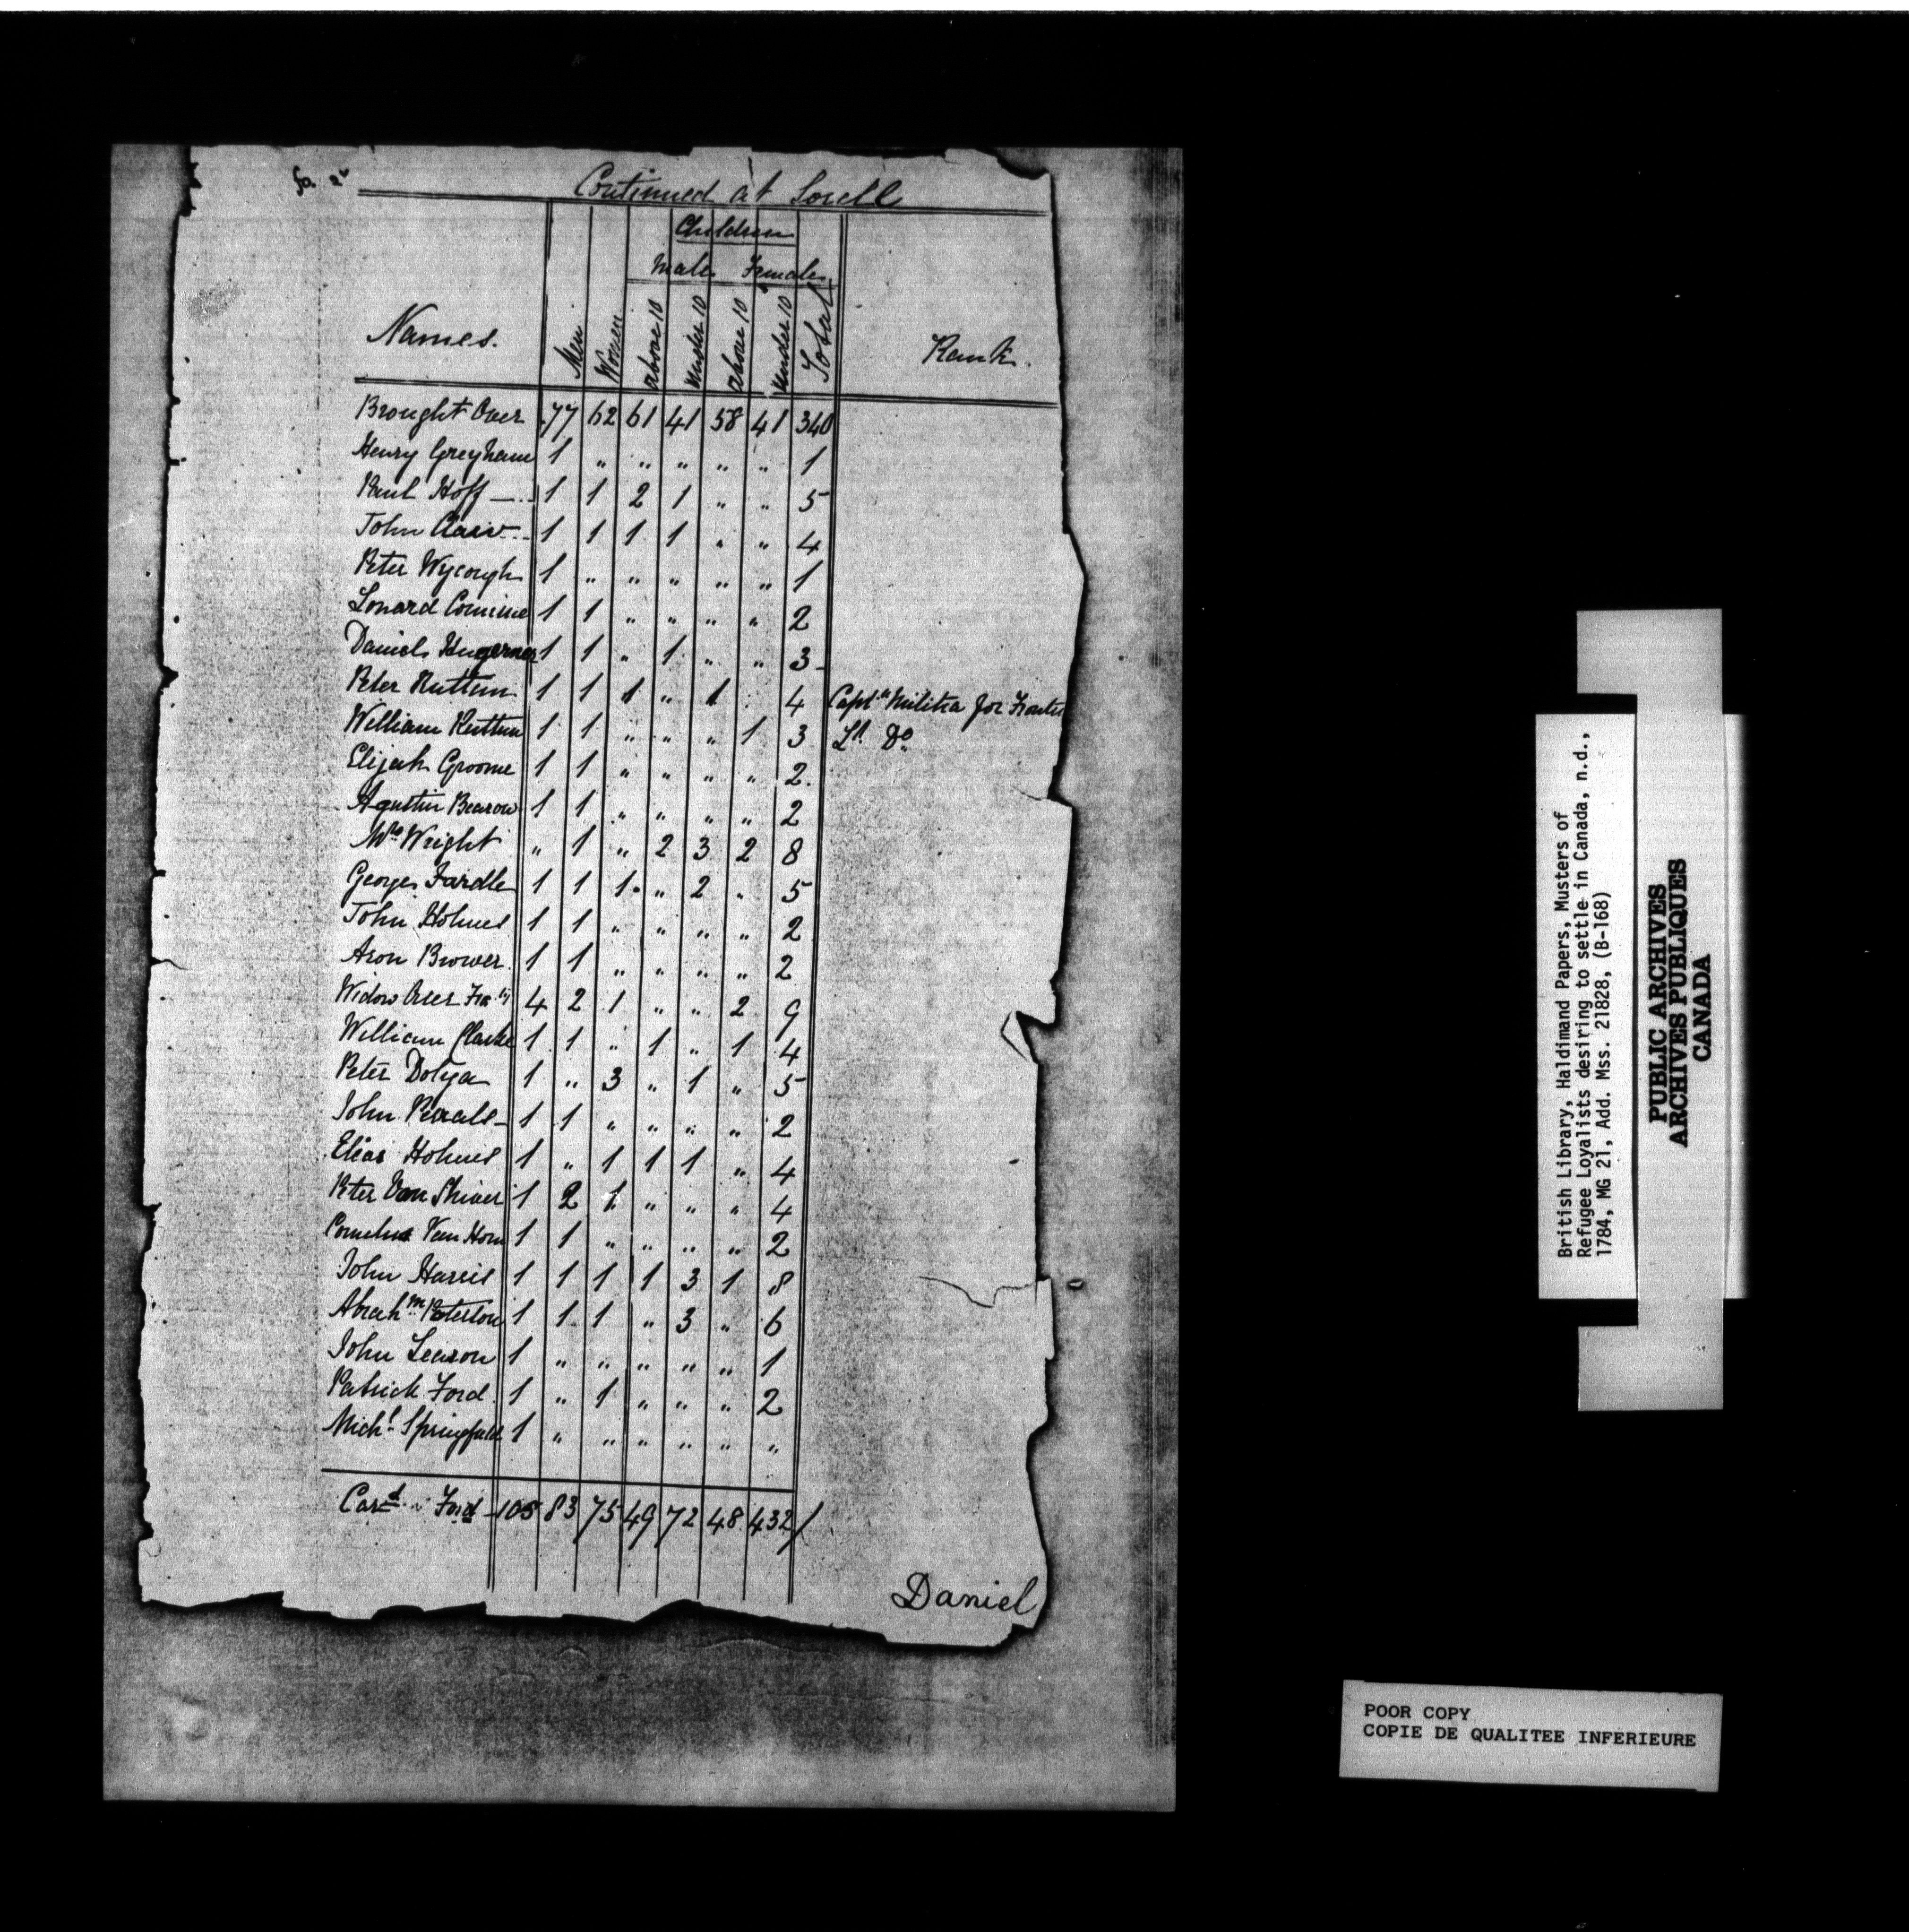 fo. 2v
Continued at Sorell
Children
Male Females
Names. Men Women above 10 under 10 above 10 under 10 Total Rank.
Brought Over 77 62 61 41 58 41 340
Henry Greyham 1 " " " " " 1
Paul Hoff 1 1 2 1 " " 5
John 1 1 1 1 " " 4
Peter Wycough 1 " " " " " 1
Lonard 1 1 " " " " 2
Daniel 1 1 " 1 " " 3
Peter Ruttan 1 1 1 " 1 4 Captn Militia for Frontier
William Ruttan 1 1 " " " 1 3 Lt. Do
Elijah Groome 1 1 " " " " 2.
Agustin 1 1 " " " " 2
Mrs Wright " 1 " 2 3 2 8
George Fardle 1 1 1 " 2 " 5
John Holmes 1 1 " " " " 2
Aron Brower 1 1 " " " " 2
Widow 4 2 1 " " 2 9
William Clarke 1 1 " 1 " 1 4
Peter Dolya 1 " 3 " 1 " 5
John 1 1 " " " " 2
Elias Holmes 1 " 1 1 1 " 4
Peter Van Shiver 1 2 1 " " " 4
Cornelius Van Horn 1 1 " " " " 2
John Harris 1 1 1 1 3 1 8
Abrahm Peterson 1 1 1 " 3 " 6
John Learson 1 " " " " " 1
Patrick Ford 1 " 1 " " " 2
Michl Springfield 1 " " " " " "
Card Ford 105 83 75 49 72 48 432
Daniel
British Library, Haldimand Papers, Musters of
Refugee Loyalists desiring to settle in Canada, n.d.,
1784, MG 21, Add. Mss. 21828, (B-168)
PUBLIC ARCHIVES
ARCHIVES PUBLIQUES
CANADA
POOR COPY
COPIE DE QUALITEE INFERIEURE